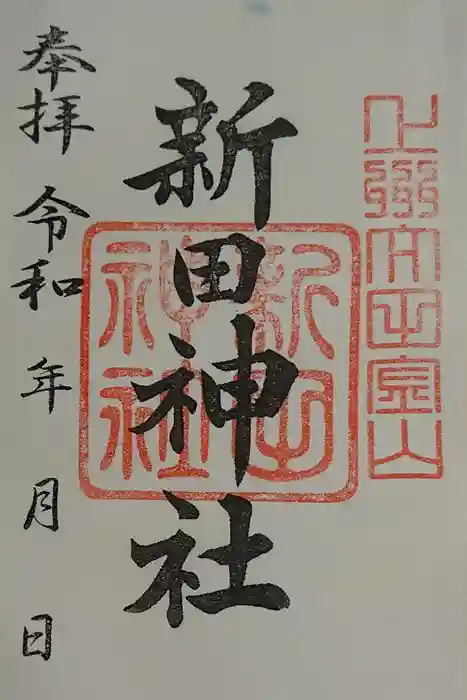 上州太田金山
新田神社
新田神社
奉拝 令和 年 月 日